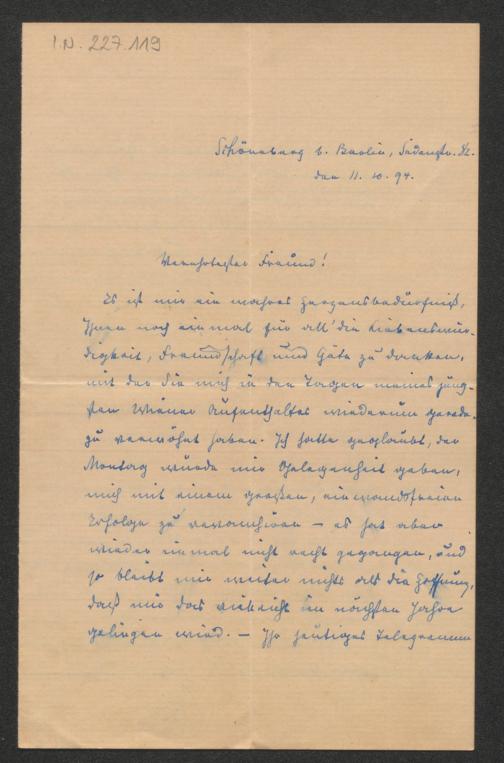 I.N. 227.119
Schöneberg b. Berlin, Sedanstr.
den 11. 10. 94.
Verehrtester Freund!
Es ist mir ein wahres Herzensbedürfniß,
Ihnen noch einmal für all' die Liebenswür-
digkeit, Freundschaft und Güte zu danken,
mit der Sie mich in den Tagen meines jüng-
sten Wiener Aufenthaltes wiederum gerade-
zu verwöhnt haben. Ich hatte geglaubt, der
Montag würde mir Gelegenheit geben,
mich mit einem großen, einwandsfreien
Erfolge zu revanchiren – es hat aber
wieder einmal nicht recht gegangen, und
so bleibt mir weiter nichts als die Hoffnung,
daß mir das vielleicht im nächsten Jahre
gelingen wird. – Ihr heutiges Telegramm